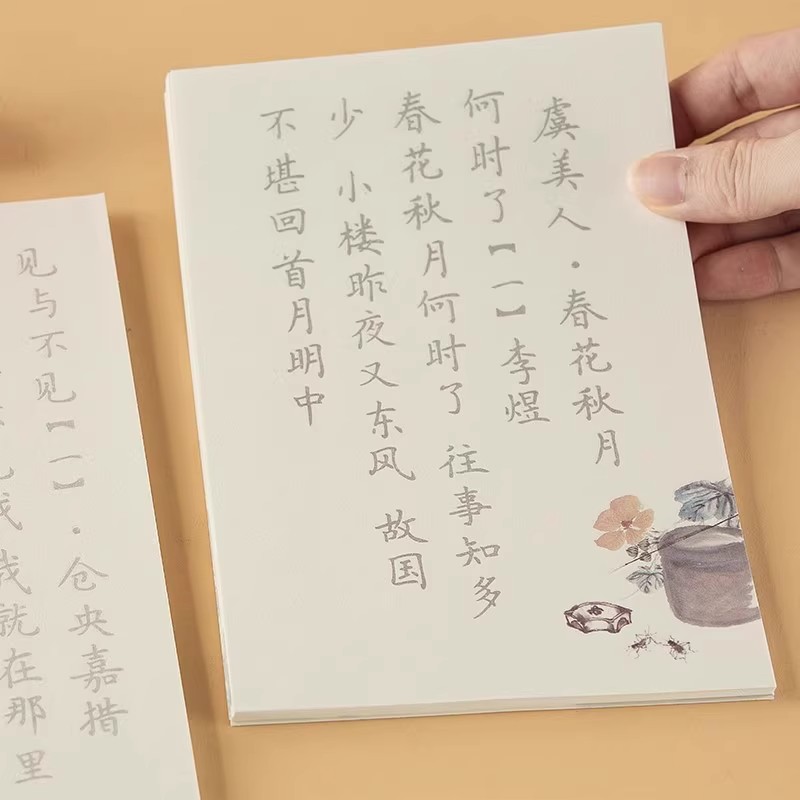 虞美人·春花秋月
何时了【一】李煜
春花秋月何时了 往事知多
少 小楼昨夜又东风 故国
不堪回首月明中
见与不见【一】·仓央嘉措
我 我就在那里